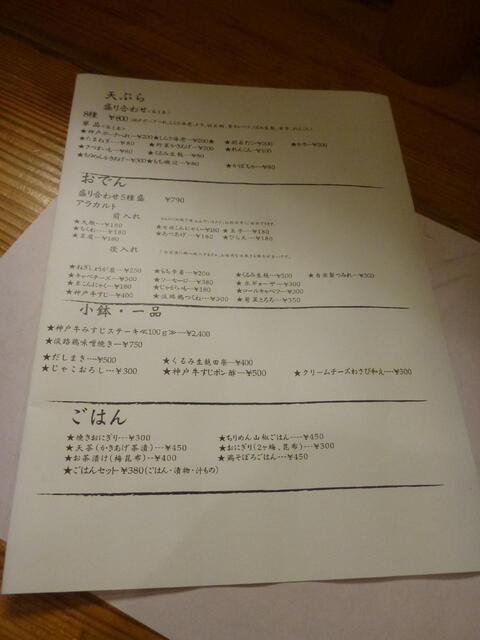 天ぷら
盛り合わせ
8種 ¥800
★神戸ポークヘレ…¥200 ★しんじゅ海老…¥200 ★明石だこ…¥200
★たまねぎ…¥80 ★野菜かきあげ…¥200 ★れんこん…¥100
★さつまいも…¥80 ★くるみ生麩…¥80
★もち明太…¥80 ★かぼちゃ…¥80
おでん
盛り合わせ5種盛 ¥790
アラカルト
前入れ
★大根…¥180 ★玉子…¥180
★ちくわ…¥180 ★あつあげ…¥180 ★ひら天…¥180
★豆腐…¥180
後入れ
★ねぎしょうが薬…¥250 ★もち巾着…¥200 ★くるみ生麩…¥500 ★自家製つみれ…¥300
★キャベチーズ…¥300 ★ソーセージ…¥380 ★水ギョーザ…¥300
★糸こんにゃく…¥180 ★じゃがいも…¥180 ★ロールキャベツ…¥300
★神戸牛すじ…¥400 ★淡路鶏つくね…¥300 ★菊菜とろろ…¥350
小鉢・一品
★神戸牛みすじステーキ≪100g≫…¥2,400
★淡路鶏味噌焼き…¥750
★だしまき…¥500 ★くるみ生麩田楽…¥400
★じゃこおろし…¥300 ★神戸牛すじポン酢…¥500 ★クリームチーズわさび和え…¥300
ごはん
★焼きおにぎり…¥300 ★ちりめん山椒ごはん…¥450
★天茶(かきあげ茶漬)…¥450 ★おにぎり(2ヶ梅、昆布)…¥300
★お茶漬け(梅昆布)…¥400 ★鶏そぼろごはん…¥450
★ごはんセット ¥380(ごはん・漬物・汁もの)